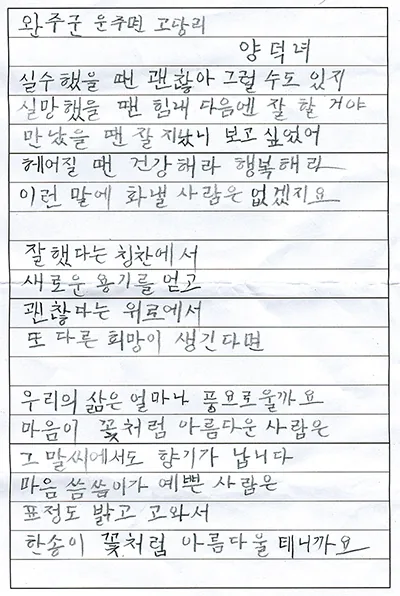 완주군 운주면 고당리
양덕녀
실수했을 땐 괜찮아 그럴 수도 있지
실망했을 땐 힘내 다음엔 잘 할 거야
만났을 땐 잘 지냈니 보고 싶었어
헤어질 땐 건강해라 행복해라
이런 말에 화낼 사람은 없겠지요
잘했다는 칭찬에서
새로운 용기를 얻고
괜찮다는 위로에서
또 다른 희망이 생긴다면
우리의 삶은 얼마나 풍요로울까요
마음이 꽃처럼 아름다운 사람은
그 말씨에서도 향기가 납니다
마음 씀씀이가 예쁜 사람은
표정도 밝고 고와서
한송이 꽃처럼 아름다울 테니까요